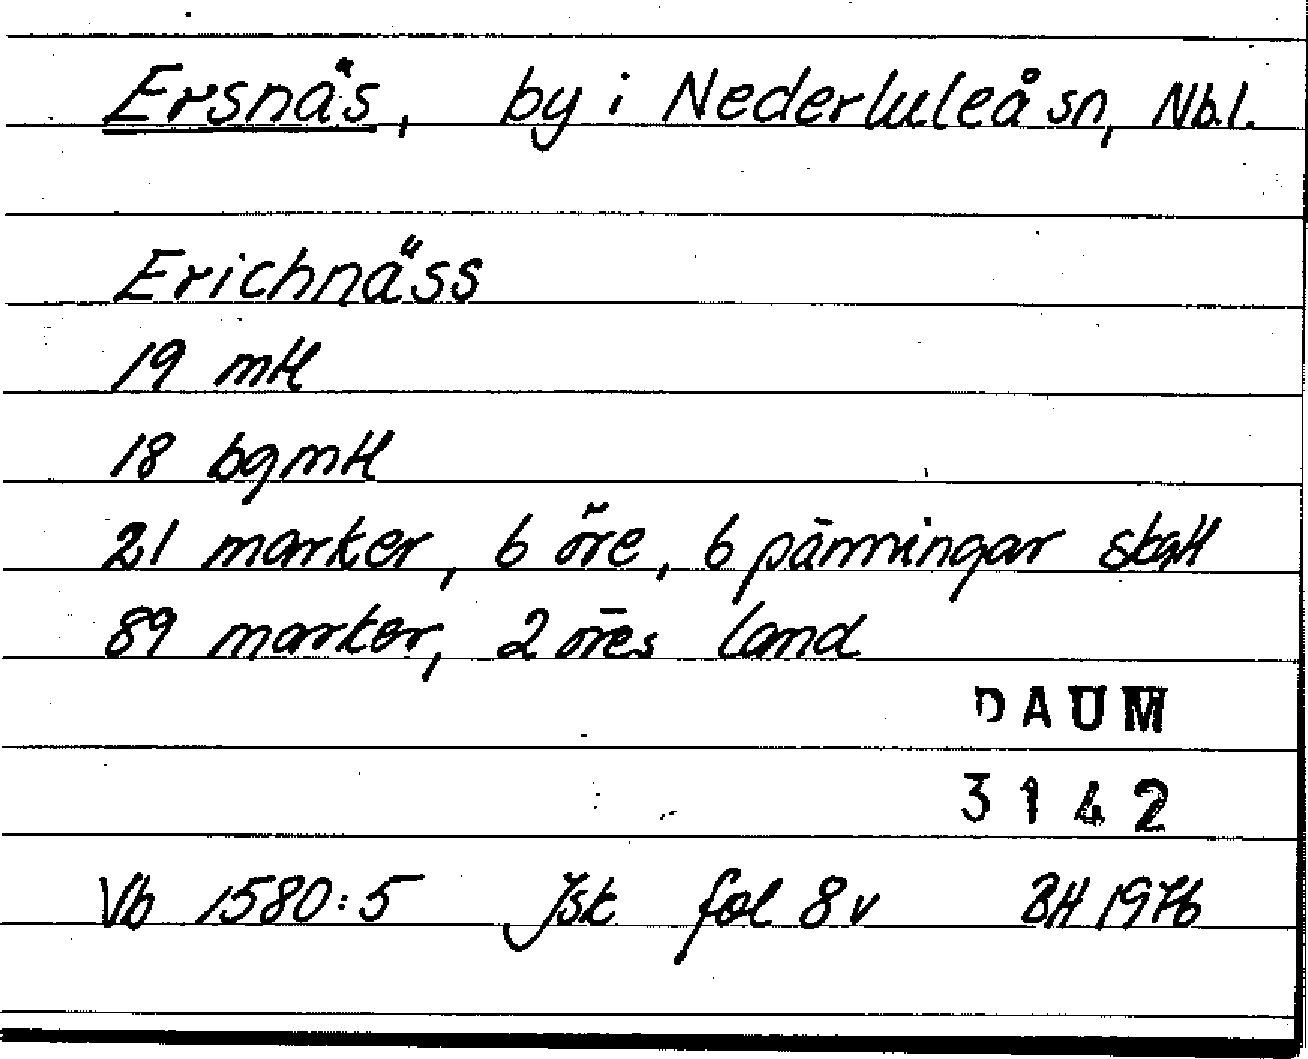 Ersnäs, by i Nederluleå sn, Nb.l.
Erichnäss
19 mtl
18 bgmtl
21 marker, 6 öre, 6 pänningar skatt
89 marker, 2 öres land
DAUM
3142
Vb 1580:5 Jsk fol 8v BH 1976